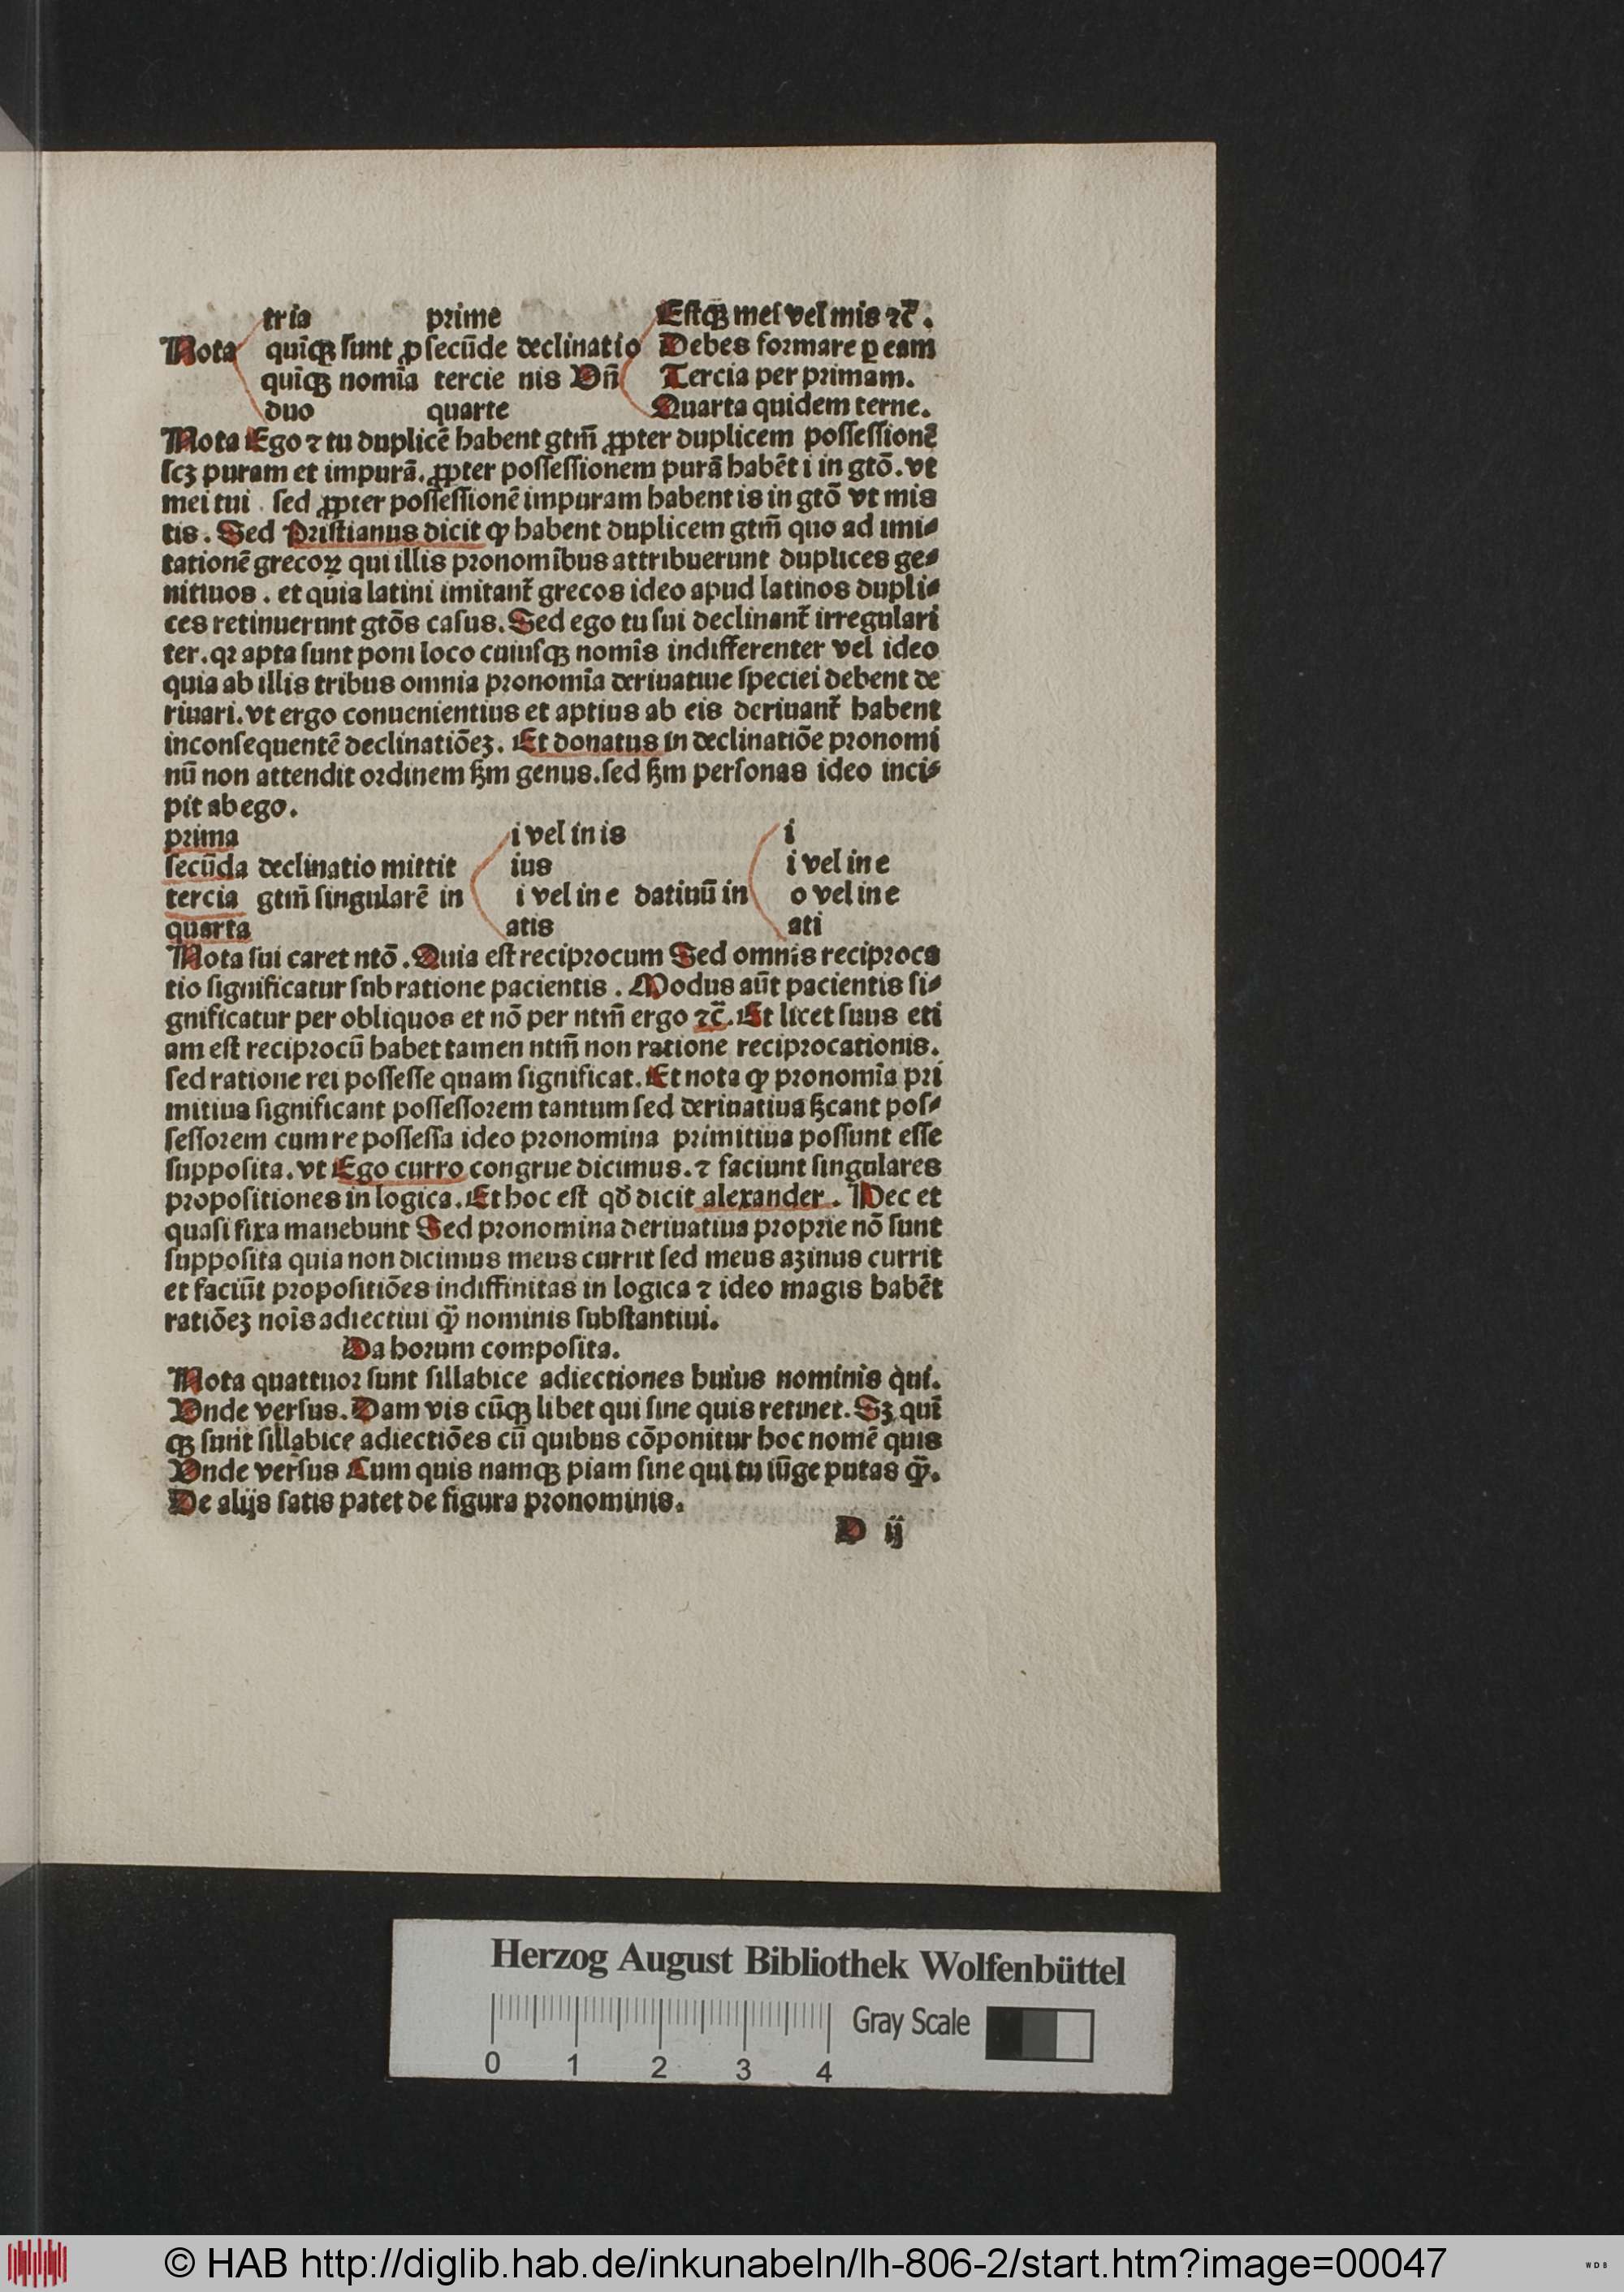 tria prime Estqꝫ mei vel mis ⁊c̄.
Nota quīqꝫ sunt ꝓnomīa secūde declinatio Debes formare ꝑ eam
quīqꝫ nomīa tercie nis Vn̄ Tercia per primam.
duo quarte Quarta quidem terne.
Nota Ego ⁊ tu duplicē habent gtm̄ ꝓpter duplicem possessionē
scꝫ puram et impurā. ꝓpter possessionem purā habēt i in gtō. vt
mei tui . sed ꝓpter possessionē impuram habent is in gtō vt mis
tis. Sed Pristianus dicit ꝙ habent duplicem gtm̄ quo ad imi⸗
tationē grecoꝝ qui illis pronomībus attribuerunt duplices ge⸗
nitiuos. et quia latini imitant̄ grecos ideo apud latinos dupli⸗
ces retinuerunt gtōs casus. Sed ego tu sui declinant̄ irregulari
ter. qꝛ apta sunt poni loco cuiusqꝫ nomīs indifferenter vel ideo
quia ab illis tribus omnia pronomīa deriuatiue speciei debent de
riuari. vt ergo conuenientius et aptius ab eis deriuant̄ habent
inconsequentē declinatiōeꝫ. Et donatus in declinatiōe pronomi
nū non attendit ordinem ẜm genus. sed ẜm personas ideo inci⸗
pit ab ego.
prima i vel in is i
secūda declinatio mittit ius i vel in e
tercia gtm̄ singularē in i vel in e datiuū in o vel in e
quarta atis ati
Nota sui caret ntō. Quia est reciprocum Sed omnis reciproca
tio significatur sub ratione pacientis. Modus aūt pacientis si⸗
gnificatur per obliquos et nō per ntm̄ ergo ⁊c̄. Et licet suus eti
am est reciprocū habet tamen ntm̄ non ratione reciprocationis.
sed ratione rei possesse quam significat. Et nota ꝙ pronomīa pri
mitiua significant possessorem tantum sed deriuatiua ẜcant pos⸗
sessorem cum re possessa ideo pronomina primitiua possunt esse
supposita. vt Ego curro congrue dicimus. ⁊ faciunt singulares
propositiones in logica. Et hoc est qd̄ dicit alexander. Hec et
quasi fixa manebunt Sed pronomina deriuatiua proprie nō sunt
supposita quia non dicimus meus currit sed meus aꝫinus currit
et faciūt propositiōes indiffinitas in logica ⁊ ideo magis habēt
ratiōeꝫ noīs adiectiui ꝙ̄ nominis substantiui.
Da horum composita.
Nota quattuor sunt sillabice adiectiones huius nominis qui.
Vnde versus. Dam vis cūqꝫ libet qui sine quis retinet. Sꝫ quī
qꝫ sunt sillabice adiectiōes cū quibus cōponitur hoc nomē quis
Vnde versus Cum quis namqꝫ piam sine qui tu iūge putas ꝙ̄.
De alijs satis patet de figura pronominis.
D ij
Herzog August Bibliothek Wolfenbüttel
Gray Scale
0 1 2 3 4
© HAB http://diglib.hab.de/inkunabeln/lh-806-2/start.htm?image=00047
WDB